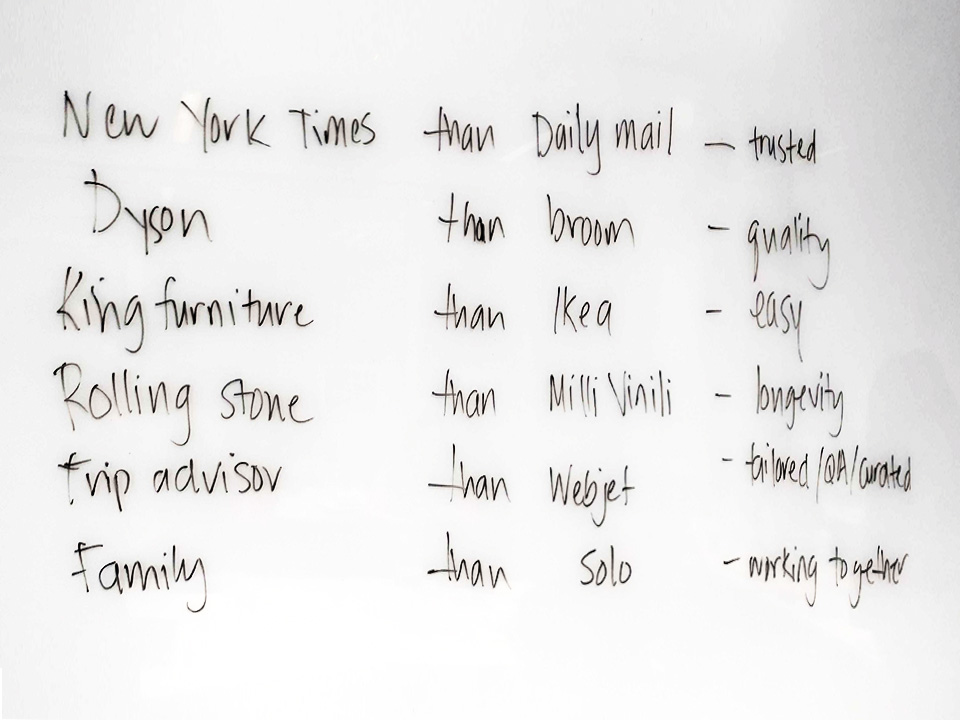 New York Times than Daily mail - trusted
Dyson than broom - quality
King furniture than Ikea - easy
Rolling stone than Milli Vinili - longevity
Trip advisor than Webjet - tailored/QA/curated
Family than Solo - working together